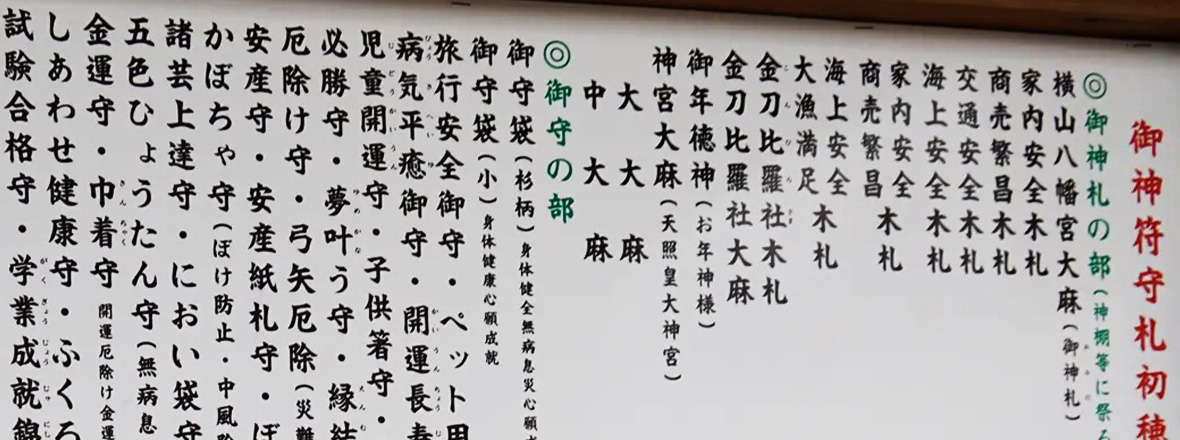 御神符守札初穂
◎御神札の部（神棚等に祭る
横山八幡宮大麻（御神札）
家内安全木札
商売繁昌木札
交通安全木札
海上安全木札
家内安全
商売繁昌
木札
海上安全
大漁満足
木札
金刀比羅社木札
金刀比羅社大麻
御年徳神（お年神様）
神宮大麻（天照皇大神宮）
大大麻
中大麻
◎御守の部
御守袋（杉柄）身体健全無病息災心願成
御守袋（小）身体健康心願成就
旅行安全御守・ペット用
病気平癒御守・開運長寿
児童開運守・子供箸守・
必勝守・夢叶う守・縁結
厄除け守・弓矢厄除（災難
安産守・安産紙札守・ぼ
かぼちゃ守（ぼけ防止・中風除
諸芸上達守・におい袋守
五色ひょうたん守（無病息
金運守・巾着守 開運厄除け金運
しあわせ健康守・ふくろ
試験合格守・学業成就錦